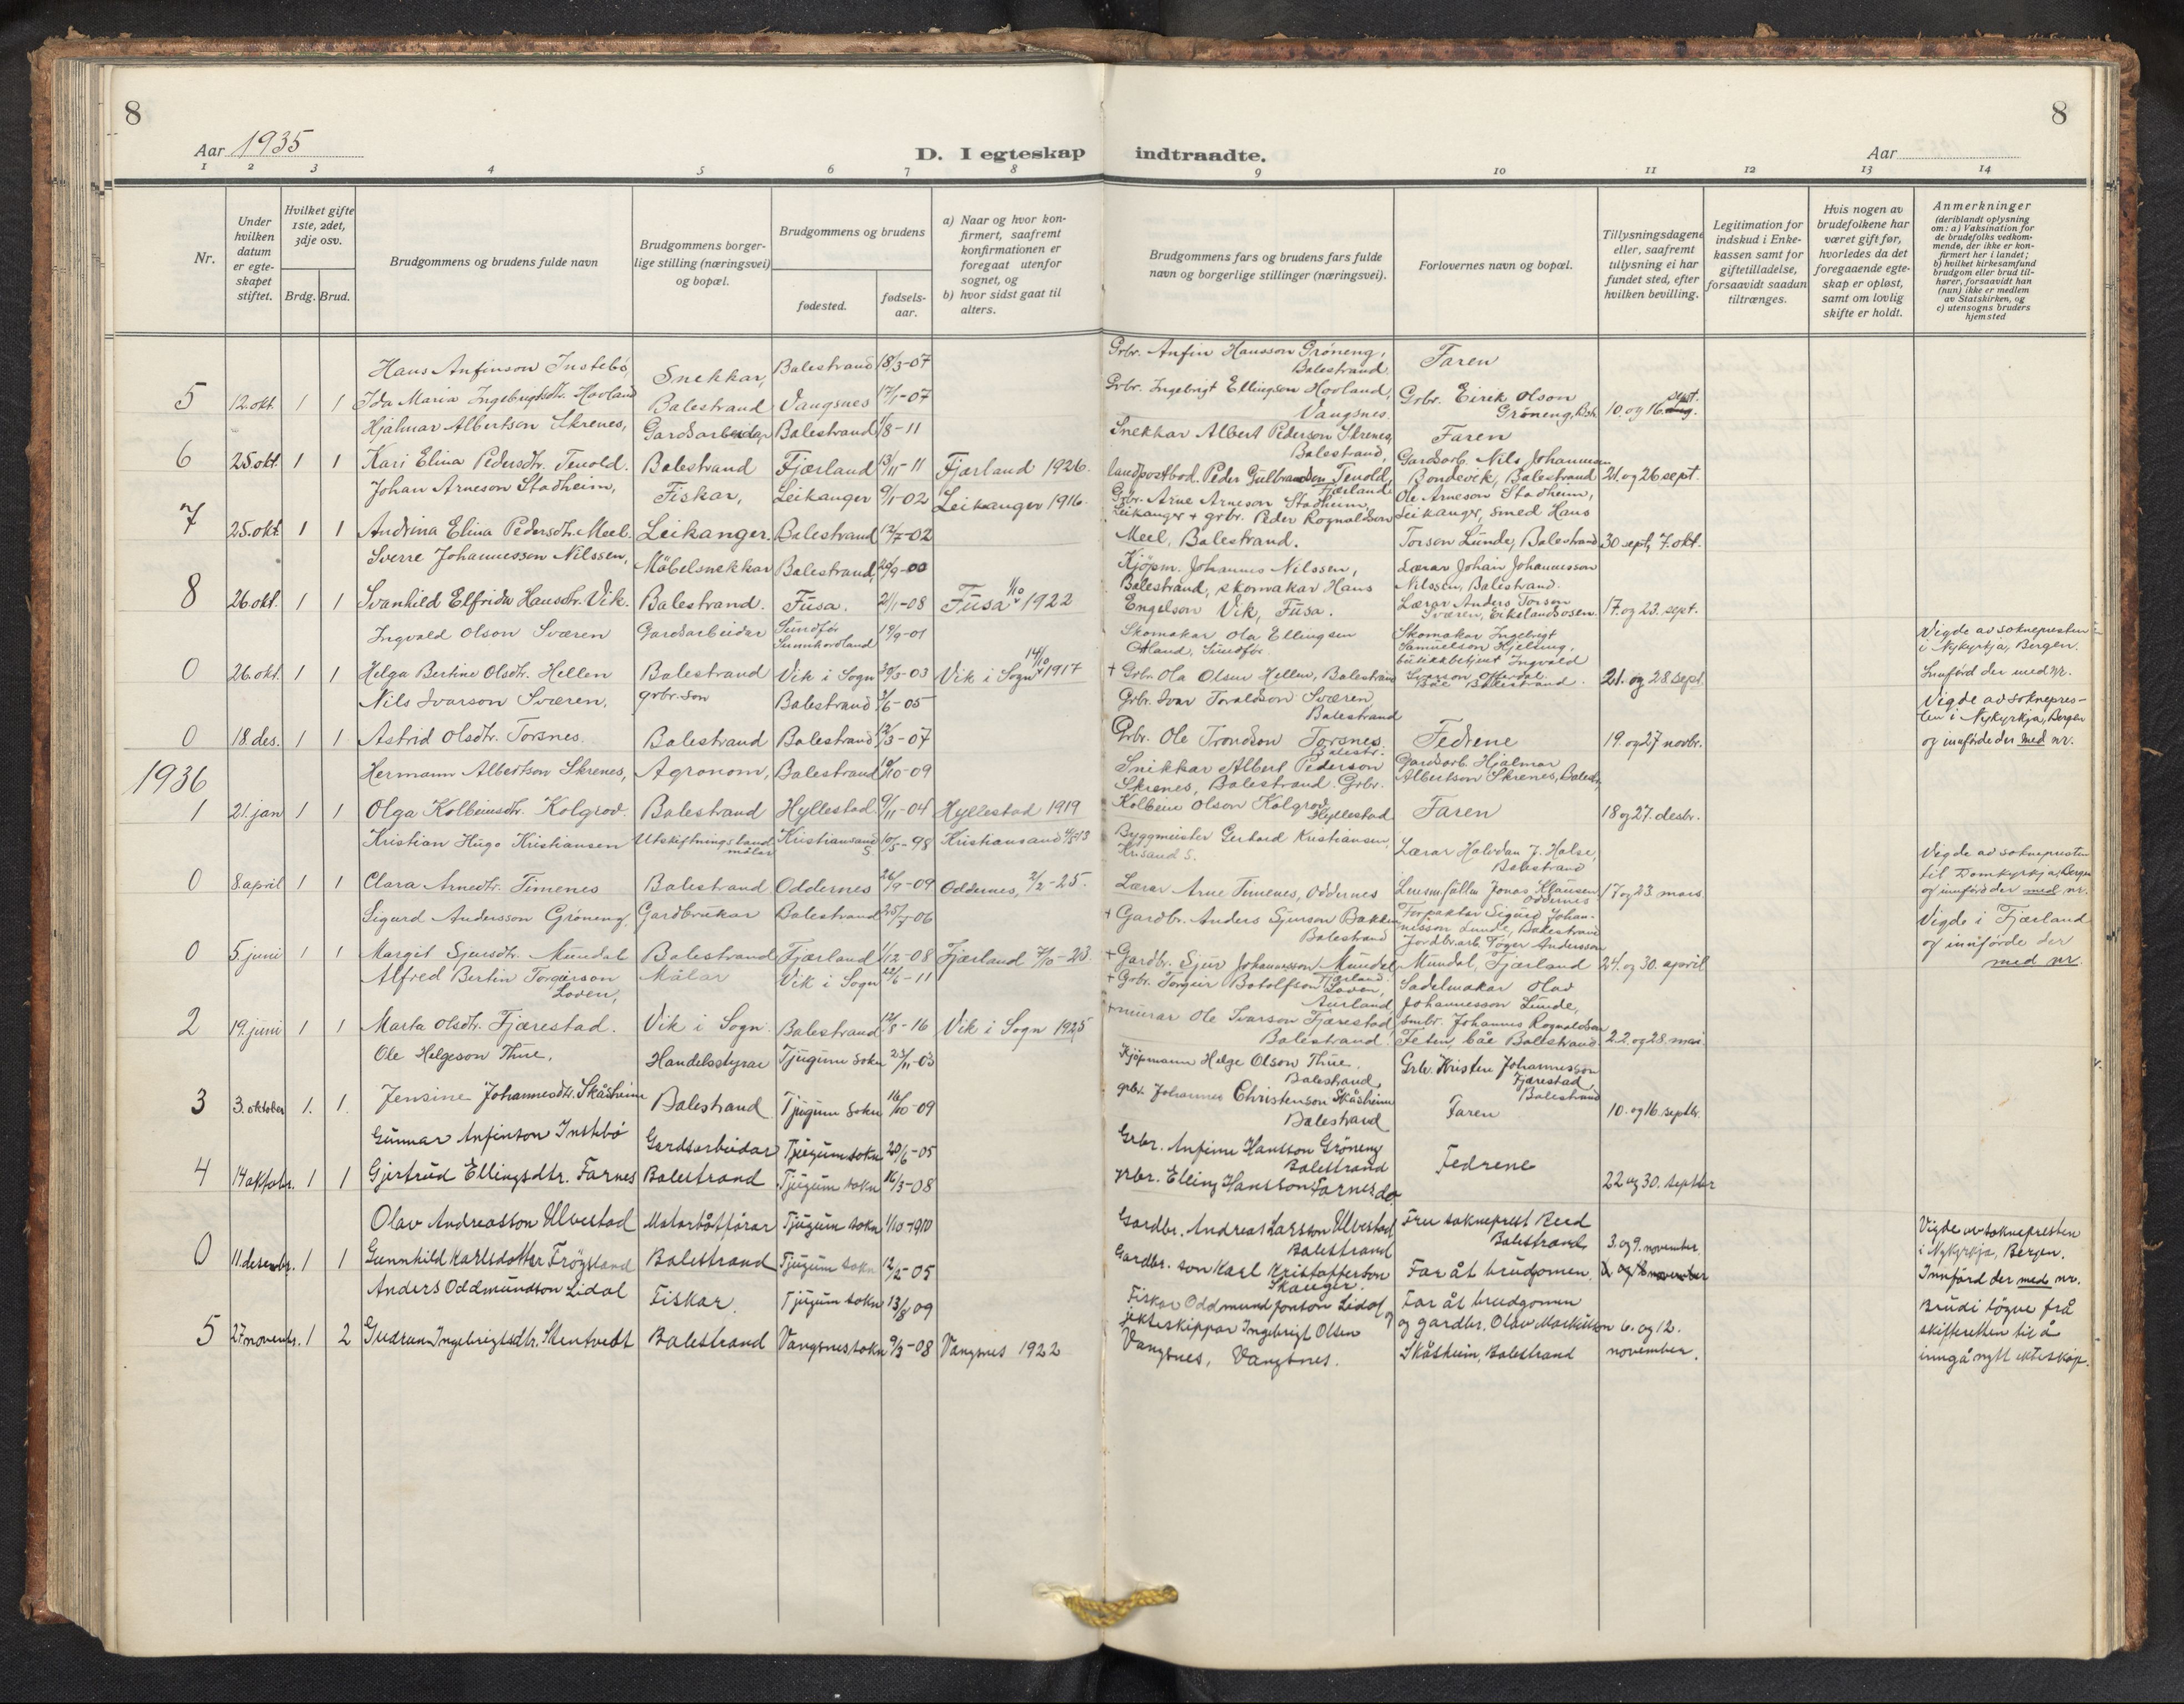 8
8
Aar 1935
D. I egteskap indtraadte.
Aar
1 2 3 4 5 6 7 8 9 10 11 12 13 14
Nr.
Under hvilken datum er egteskapet stiftet.
Hvilket gifte 1ste, 2det, 3dje osv.
Brdg. Brud.
Brudgommens og brudens fulde navn
Brudgommens borgerlige stilling (næringsvei) og bopæl.
Brudgommens og brudens
fødested.
fødselsaar.
a) Naar og hvor konfirmert, saafremt konfirmationen er foregaat utenfor sognet, og
b) hvor sidst gaat til alters.
Brudgommens fars og brudens fars fulde navn og borgerlige stillinger (næringsvei).
Forlovernes navn og bopæl.
Tillysningsdagene eller, saafremt tillysning ei har fundet sted, efter hvilken bevilling.
Legitimation for indskud i Enkekassen samt for giftetilladelse, forsaavidt saadan tiltrænges.
Hvis nogen av brudefolkene har været gift før, hvorledes da det foregaaende egteskap er opløst, samt om lovlig skifte er holdt.
Anmerkninger
(deriblandt oplysning om: a) Vaksination for de brudefolks vedkommende, der ikke er konfirmert her i landet;
b) hvilket kirkesamfund brudgom eller brud tilhører, forsaavidt han (hun) ikke er medlem av Statskirken, og
c) utensogns bruders hjemsted
Hans Anfinson Instebø, Snekkar, Balestrand 18/3-07 Grbr. Anfin Hansson Grøneng, Balestrand. Faren
5 12. okt. 1 1 Ida Maria Ingebrigtsdtr. Hovland Balestrand Vangsnes 17/1-07 Grbr. Ingebrigt Ellingsen Hovland, Vangsnes. Grbr. Eirik Olson Grøneng, Bstr. 10. og 16. sept.
Hjalmar Albertson Skrenes, Gardsarbeidar Balestrand 1/8-11 Snekkar Albert Pederson Skrenes, Balestrand, Faren
6 25. okt. 1 1 Kari Elina Pedersdtr. Tenold. Balestrand Fjærland 13/11-11 Fjærland 1926. landpostbod. Peder Gulbrandsen Tenold, Fjærland Gardsarb. Nils Johannessen Bondevik, Balestrand 21. og 26 sept.
Johan Arneson Stadheim, Fiskar, Leikanger 9/1-02 Leikanger 1916. Grbr. Arne Arneson Stadheim, Leikanger + grbr. Peder Rognaldson Ole Arneson Stadheim, Leikanger, smed Hans
7 25. okt. 1 1 Andrina Elina Pedersdtr. Meel. Leikanger. Balestrand 12/7-02 Meel, Balestrand. Torson Lunde, Balestrand 30 sept, 7. okt.
Sverre Johannesson Nilssen, Møbelsnekkar Balestrand, 29/9-00 Kjøpm. Johannes Nilssen, Balestrand, skomakar Hans Lærar Johan Johannesson Nilssen, Balestrand.
8 26. okt. 1 1 Svanhild Elfrida Hansdtr. Vik. Balestrand. Fusa. 2/1-08 Fusa 1/10 1922 Engelson Vik, Fusa. Lærar Anders Torson Sværen, Eikelandsosen. 17. og 23. sept.
Ingvald Olson Sværen Gardsarbeidar Sundfør Sunnhordland 19/9-01 Skomakar Ola Ellingsen Aland, Sundfør. Skomakar Ingebrigt Samuelson Kjelling, butikkbetjent Ingvald Vigde av soknepresten i Nykyrkja, Bergen.
0 26. okt. 1 1 Helga Bertine Olsdtr. Hellen Balestrand Vik i Sogn 30/3-03 Vik i Sogn 14/10 1917 + Grbr. Ola Olsen Hellen, Balestrand Balestrand. 21. og 28. sept. Innførd der med nr.
Nils Ivarson Sværen, grbr. son Balestrand 3/6-05 Grbr. Ivar Torvaldson Sværen Balestrand Vigde av soknepresten i Nykyrkja, Bergen
0 18. des. 1 1 Astrid Olsdtr. Torsnes. Balestrand Balestrand 12/3-07 Grbr. Ole Trondson Torsnes. Balestr. Fedrene 19. og 27 novbr. og innførde der med nr.
1936
Hermann Albertson Skrenes, Agronom, Balestrand 19/10-09 Snikkar Albert Pederson Skrenes, Balestrand. Grbr. Gardsarb. Hjalmar Albertson Skrenes, Balestr.
1 21. jan 1 1 Olga Kolbeinsdtr. Kolgrov. Balestrand Hyllestad 9/11-04 Hyllestad 1919 Kolbein Olson Kolgrov Hyllestad Faren 18 og 27. desbr.
Kristian Hugo Kristiansen Utskiftningslandmålar Kristiansand S. 10/5-98 Kristiansand 4/5 13 Byggmeister Gerhard Kristiansen, Krisand S. Lærar Halvdan J. Halse, Balestrand Vigde av soknepresten til Domkyrkja, Bergen
0 8. april 1 1 Clara Arnedtr. Timenes Balestrand Oddernes 26/9-09 Oddernes, 2/2-25. Lærar Arne Timenes, Oddernes Lensm.fullm Jonas Klausen, Oddernes 17 og 23. mars og innførd der med nr.
Sigurd Andersson Grøneng, Gardbrukar Balestrand 25/7-06 + Gardbr. Anders Sjurson Bakken Balestrand Forpaktar Sigurd Johannesson Lunde, Balestrand Vigde i Fjærland
0 5. juni 1 1 Margit Sjursdtr. Mundal Balestrand Fjærland 1/12-08 Fjærland 7/10-23. + Gardbr. Sjur Johannesson Mundal, Fjærland. Jordbr.arb. Tøger Andersson Mundal, Fjærland 24. og 30. april og innførde der med nr.
Alfred Bertin Torgeirson Loven, Målar Vik i Sogn 22/6-11 + Grbr. Torgeir Botolfson Loven, Aurland Sadelmakar Olav Johannesson Lunde,
2 19. juni 1 1 Marta Olsdtr. Fjærestad. Vik i Sogn. Balestrand 12/8-16 Vik i Sogn 1925 + murar Ole Ivarson Fjærestad, Balestrand. smbr. Johannes Rognaldson Feten, båe Balestrand. 22. og 28. mai
Ole Helgeson Thue, Handelsstyrar Tjugum sokn 23/11-03 Kjøpmann Helge Olson Thue, Balestrand, Grbr. Kristen Johannesson Fjærestad, Balestrand
3 3. oktober 1. 1. Jensine Johannesdtr. Skåsheim Balestrand Tjugum sokn 16/10-09 grbr. Johannes Christenson Skåsheim Balestrand Faren 10. og 16. septbr.
Gunnar Anfinson Instebø Gardsarbeidar Tjugum sokn 20/6-05 Grbr. Anfinn Hansson Grøneng Balestrand
4 14 oktobr. 1 1 Gjertrud Ellingsdtr. Farnes Balestrand Tjugum sokn 16/3-08 grbr. Elling Hansson Farnes do Fedrene 22 og 30. septbr
Olav Andreasson Ulvestad Motorbåtførar Tjugum sokn 1/10-1910 Gardbr. Andreas Larsson Ulvestad Balestrand Fru sokneprest Reed Balestrand 3. og 9. november Vigde av soknepresten i Nykyrkja, Bergen.
0 11. desembr. 1 1 Gunnhild Karlsdotter Frøysland Balestrand Tjugum sokn 12/2-05 Gardbr. son Karl Kristofferson Skauger Far åt brudgomen. Innførd der med nr.
Anders Oddmundson Lidal Fiskar. Tjugum sokn 13/8 09 Fiskar Oddmund Jonson Lidal og Far åt brudgomen Brudi løyve frå
5 27 novembr. 1 2 Gudrun Ingebrigtsdtr. Stentvedt Balestrand Vangsnes sokn 9/3-08 Vangsnes 1922 jekteskippar Ingebrigt Olsen Vangsnes, Vangsnes. og gardbr. Olav Skåsheim, Balestrand 6. og 12. november. skifteretten til å inngå nytt ekteskap.